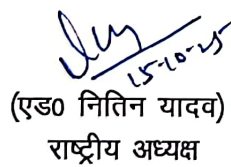 15-10-25
(एड0 नितिन यादव)
राष्ट्रीय अध्यक्ष